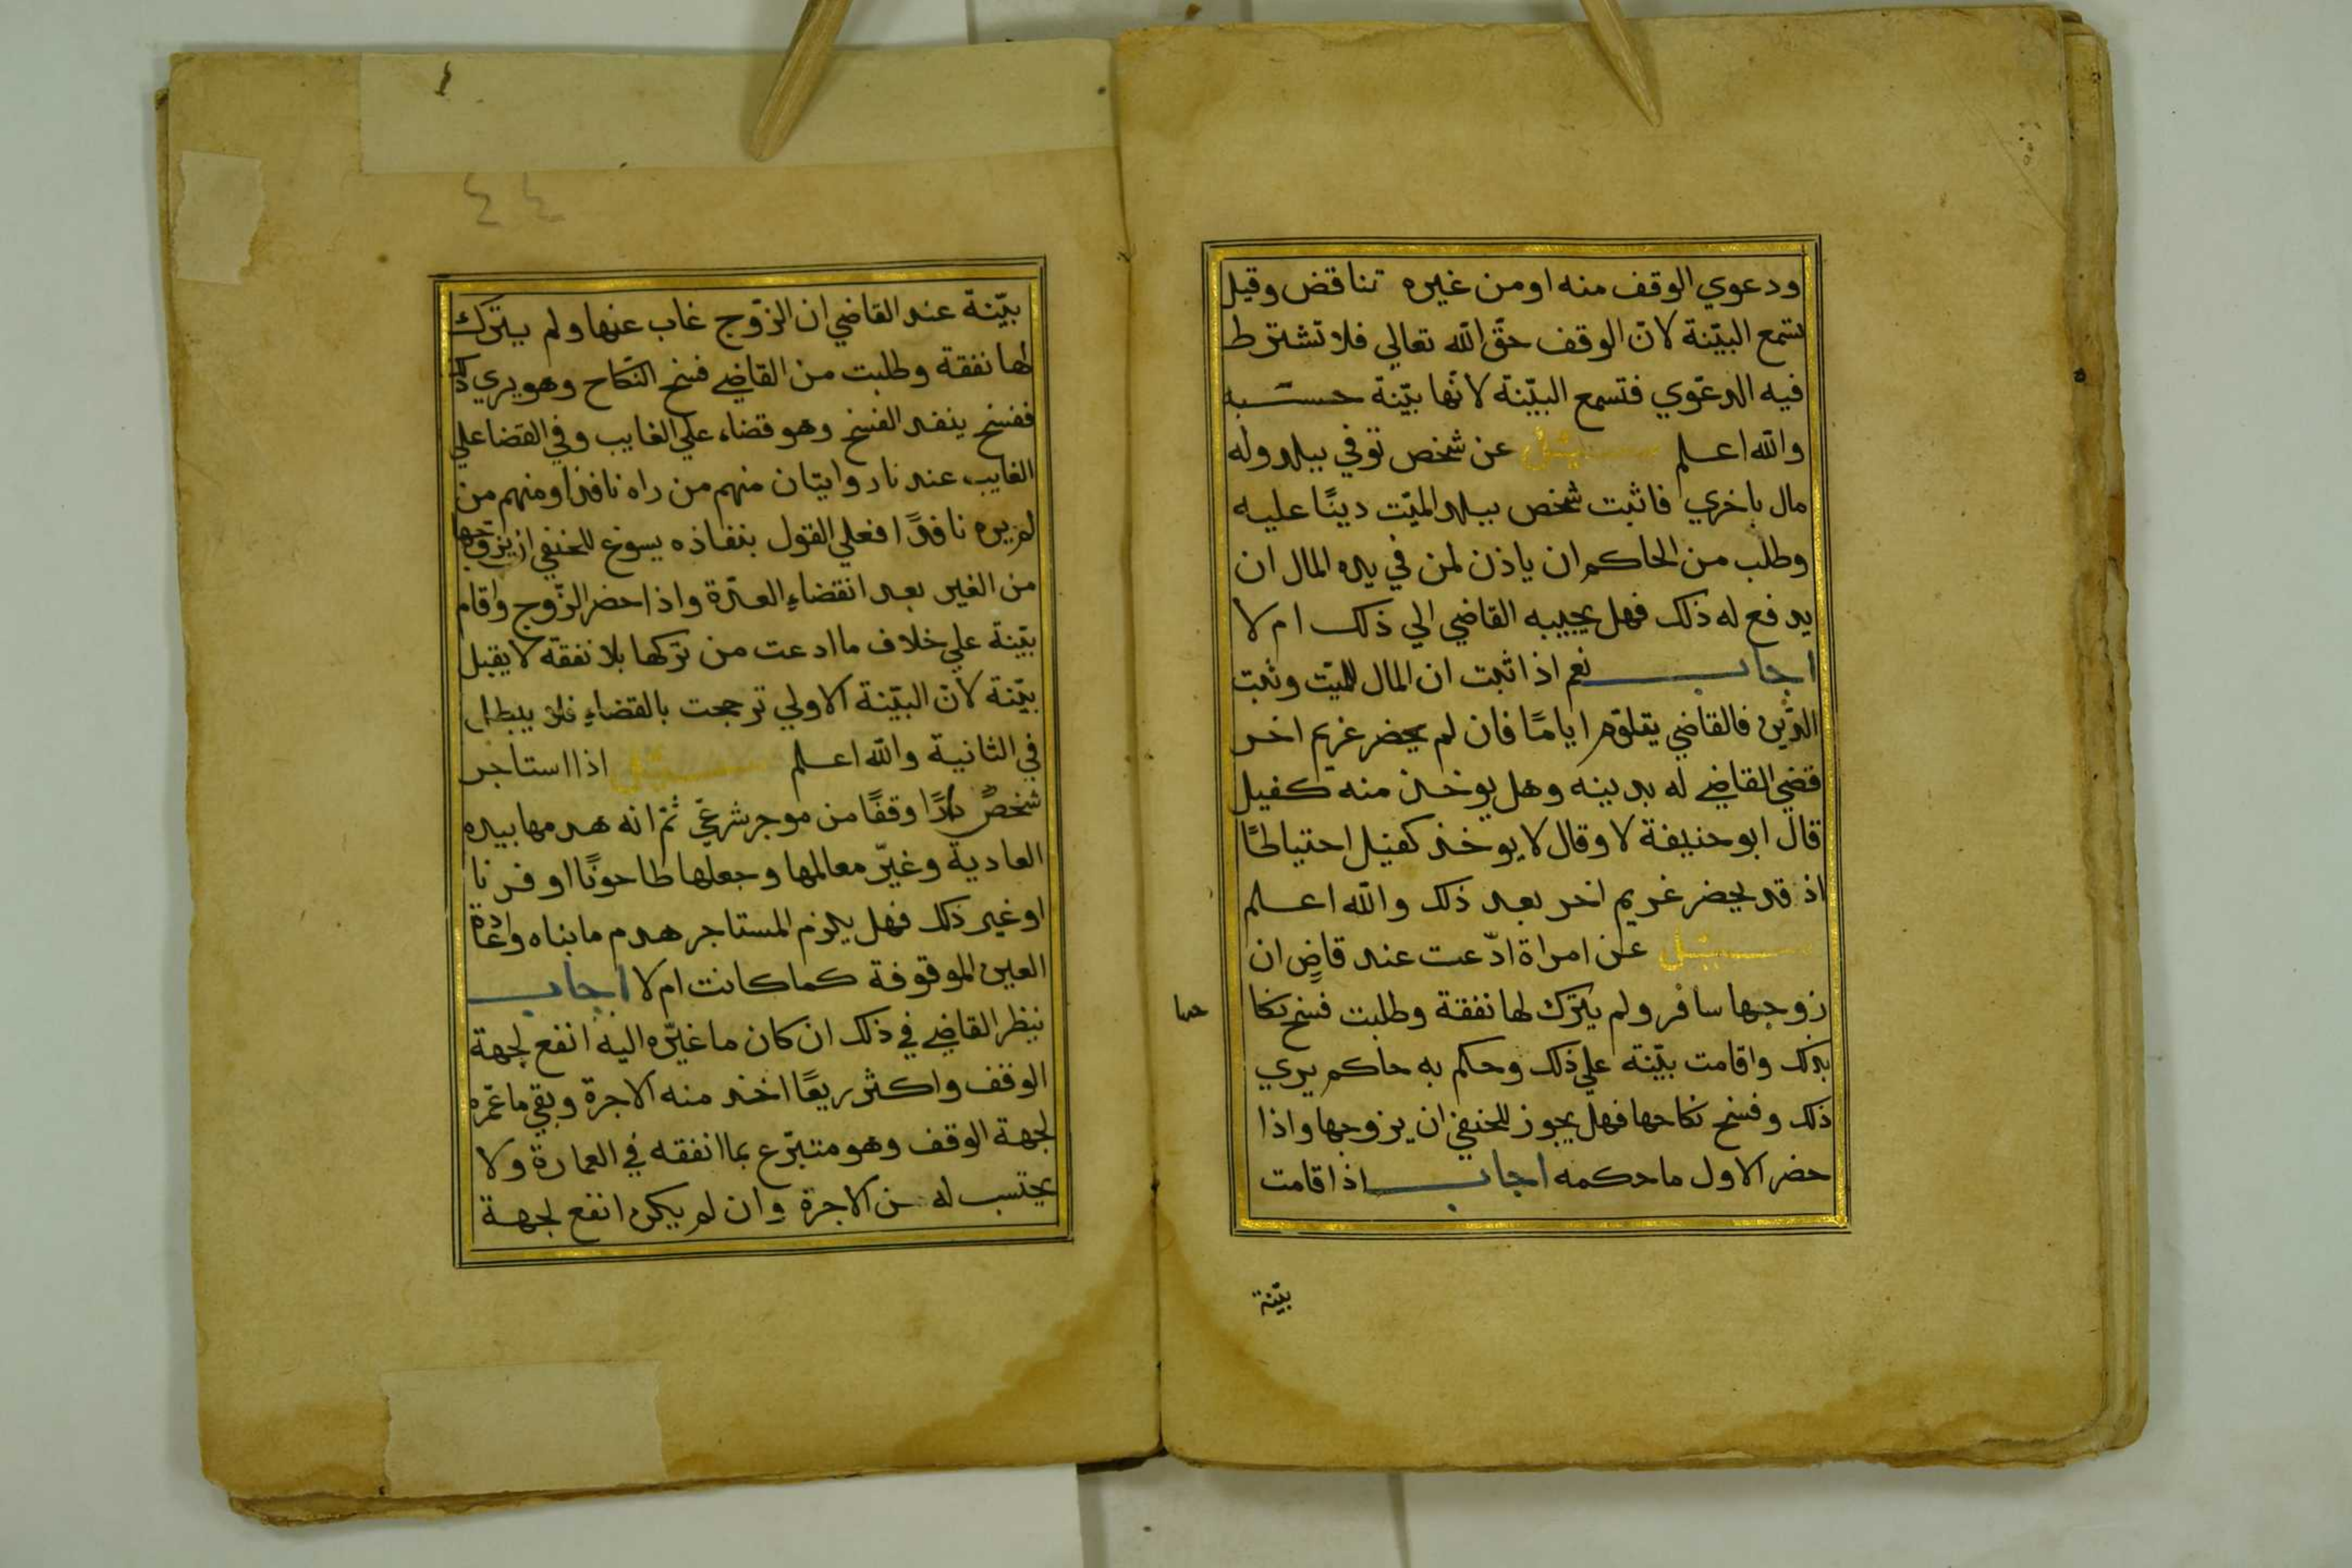 ودعوي الوقف منه او من غيره تناقض وقيل
تسمع البيّنة لانّ الوقف حقّ الله تعالي فلا تشترط
فيه الدعوي فتسمع البيّنة لانّها بيّنة حسبه
والله اعلم سئل عن شخص توفي ببلد وله
مال باخري فاثبت شخص ببلد الميّت دينًا عليه
وطلب من الحاكم ان ياذن لمن في يده المال ان
يدفع له ذلك فهل يجيبه القاضي الي ذلك ام لا
اجاب نعم اذا ثبت ان المال للميّت وثبت
الدّين فالقاضي ايامًا فان لم يحضر غريم اخر
قضي القاضي له بدينه وهل يوخذ منه كفيل
قال ابو حنيفة لا وقال لا يوخذ كفيل احتياطًا
اذ قد يحضر غريم اخر بعد ذلك والله اعلم
سئل عن امراة ادّعت عند قاضٍ ان
زوجها سافر ولم يترك لها نفقة وطلبت فسخ نكا
حها
بذلك واقامت بيّنة علي ذلك وحكم به حاكم يري
ذلك وفسخ نكاحها فهل يجوز للحنفي ان يزوجها واذا
حضر الاول ما حكمه اجاب اذا اقامت
بيّنة
٤٤
بيّنة عند القاضي ان الزّوج غاب عنها ولم يترك
لها نفقة وطلبت من القاضي فسخ النكاح وهو يري ذلك
ففسخ ينفد الفسخ وهو قضاء علي الغايب وفي القضا علي
الغايب عندنا روايتان منهم من راه نافذا ومنهم من
لم يره نافذًا فعلي القول بنفاذه يسوغ للحنفي ان يزوّجها
من الغير بعد انقضاءِ العدّة واذا حضر الزّوج واقام
بيّنة علي خلاف ما ادعت من تركها بلا نفقة لا يقبل
بيّنة لانّ البيّنة الاولي ترجحت بالقضاءِ فلا يبطل
في الثانية والله اعلم سئل اذا استاجر
شخصٌ دارًا وقفًا من موجر شرعيّ ثمّ انه هدمها بيده
العادية وغيّر معالمها وجعلها طاحونًا او فرنا
او غير ذلك فهل يلزم المستاجر هدم ما بناه واعادة
العين الموقوفة كما كانت ام لا اجاب
ينظر القاضي في ذلك ان كان ما غيّره اليه انفع لجهة
الوقف واكثر ريعًا اخذ منه الاجرة وبقي ما عمّره
لجهة الوقف وهو متبرّع بما انفقه في العمارة ولا
يحتسب له من الاجرة وان لم يكن انفع لجهة